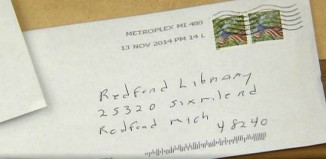 METROPLEX MI 480
13 NOV 2014 PM 14 L
Redford Library
25320 sixmilerd
Redford Mich
48240